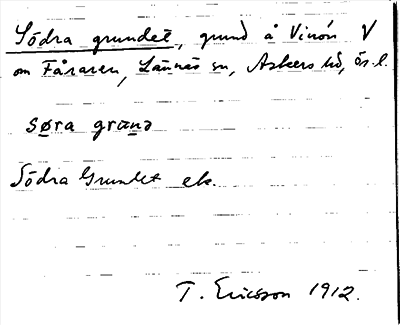 Södra grundet, grund å Vinön V
om Fåraren, Lännäs sn, Askers hd, ös. l.
søra grɯnə
Södra Grundet ek.
T. Ericsson 1912.